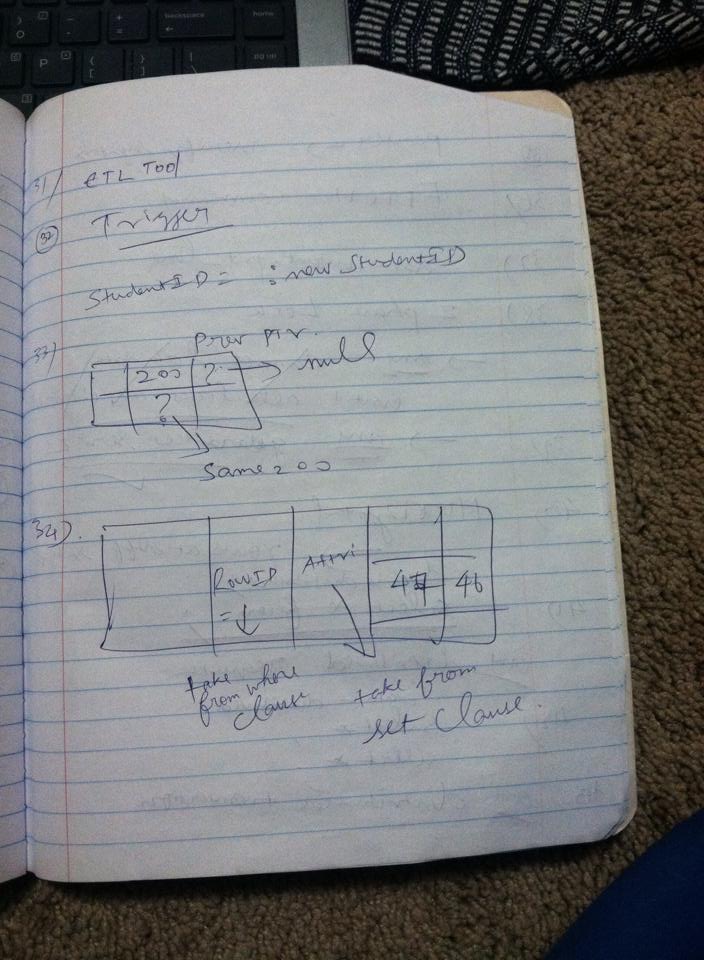 31/ ETL Tool
32 Trigger
StudentID = :new StudentID
33) Prev Ptr.
200 ? null
?
Same 200
34).
RowID Attri
= 47 46
take from where clause
take from set clause.